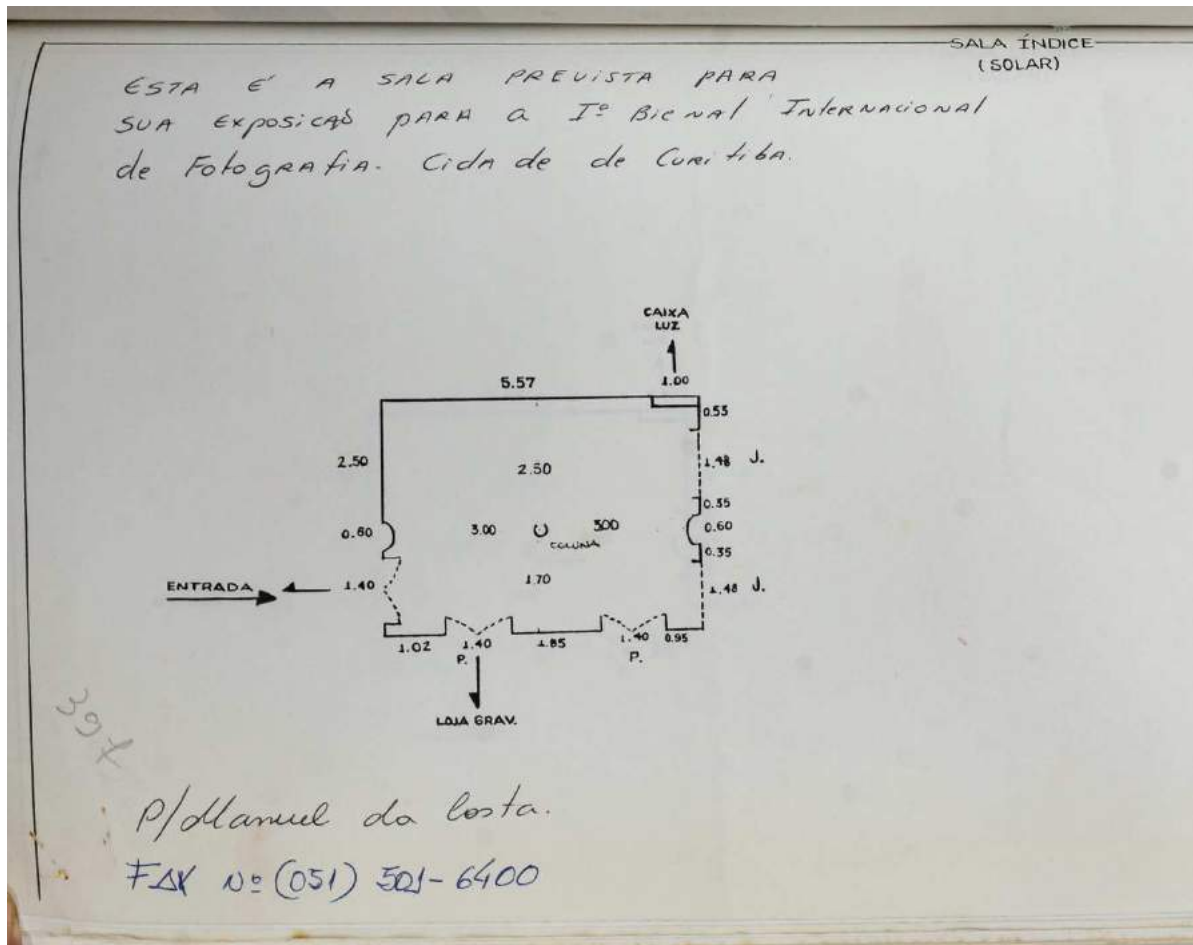 SALA ÍNDICE
(SOLAR)
ESTA É A SALA PREVISTA PARA
SUA EXPOSIÇÃO PARA A Iº BIENAL INTERNACIONAL
de FOTOGRAFIA. CIDADE de CURITIBA.
CAIXA
LUZ
5.57
1.00
0.55
2.50
2.50
1.48 J.
0.35
0.60
3.00
300
0.60
COLUNA
0.35
ENTRADA
1.40
1.70
1.48 J.
1.02
1.40
1.85
1.40
0.95
P.
P.
LOJA GRAV.
397
P/Manuel da Costa.
FAX Nº (051) 501-6400